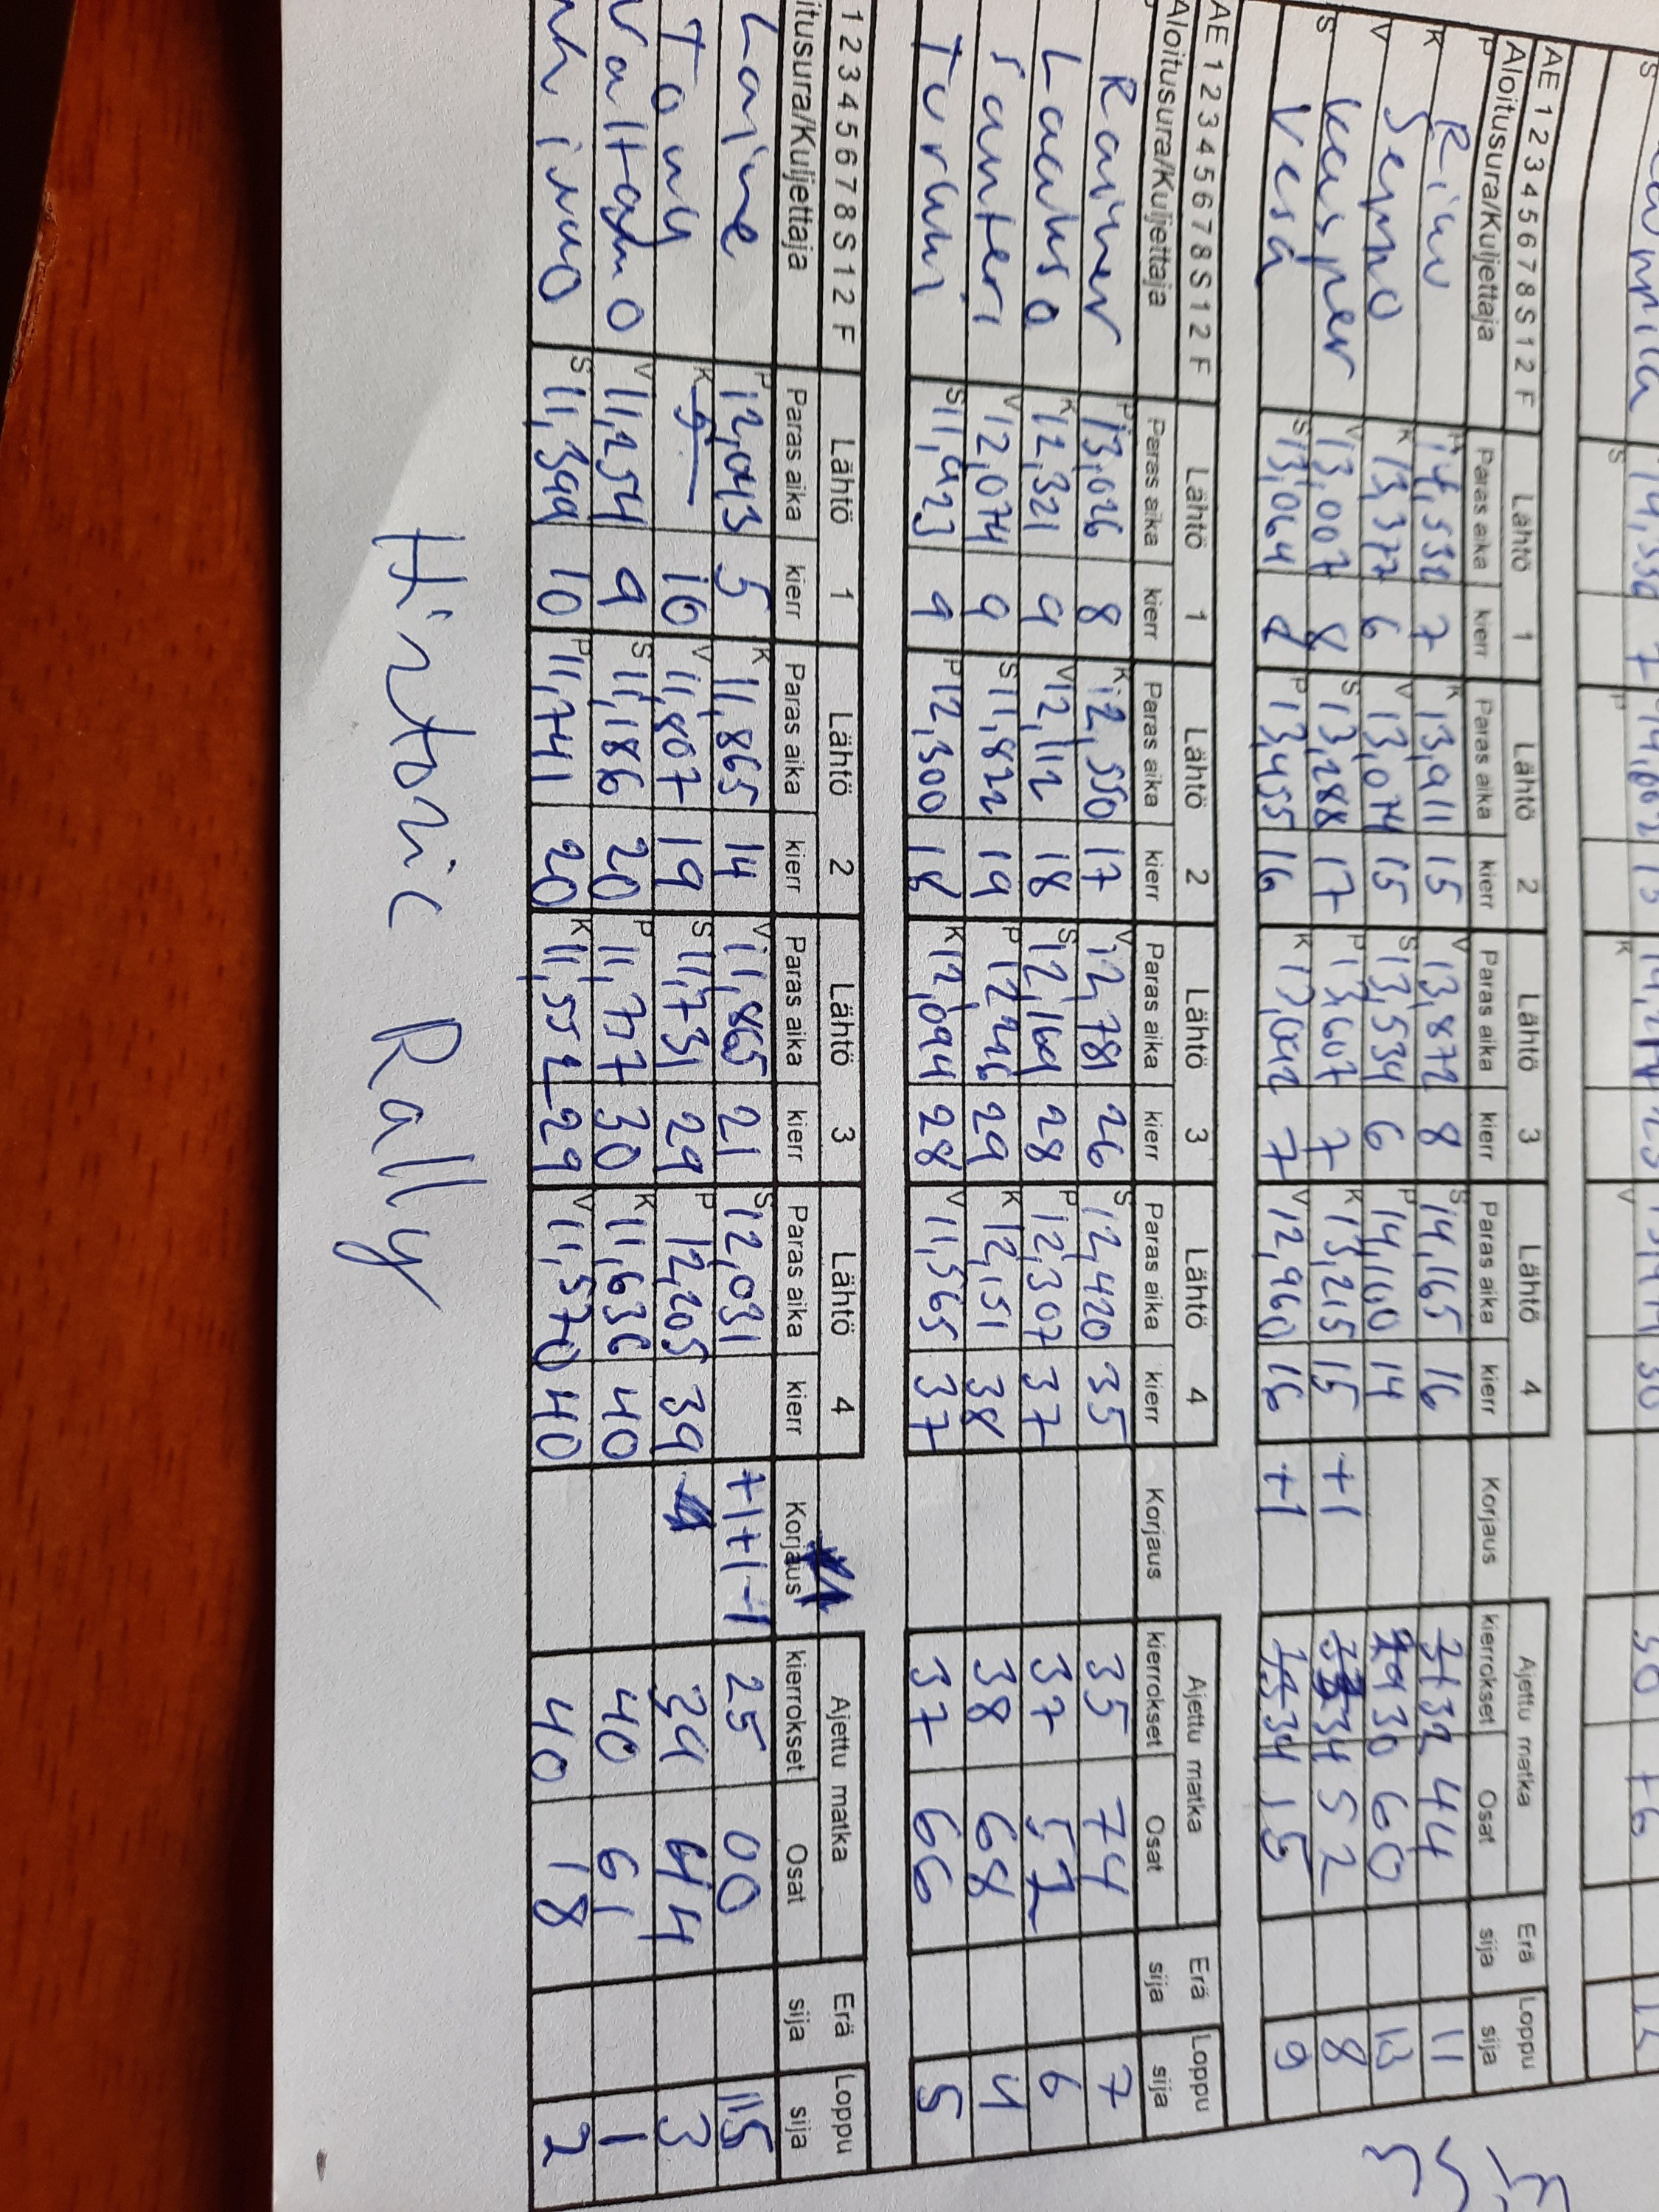 S 14,002 15
AE 1 2 3 4 5 6 7 8 S 1 2 F Lähtö 1 Lähtö 2 Lähtö 3 Lähtö 4 Ajettu matka Erä Loppu
Aloitusura/Kuljettaja Paras aika kierr Paras aika kierr Paras aika kierr Paras aika kierr Korjaus kierrokset Osat sija sija
P P 14,532 7 K 13,911 15 V 13,872 8 S 14,165 16 32 44 11
K Seppo K 13,377 6 V 13,074 15 S 13,534 6 P 14,100 14 30 60 13
V Kasper V 13,007 8 S 13,288 17 P 13,607 7 K 13,215 15 +1 34 52 8
S Vesa S 13,064 8 P 13,455 16 K 13,042 7 V 12,960 16 +1 34 15 9
AE 1 2 3 4 5 6 7 8 S 1 2 F Lähtö 1 Lähtö 2 Lähtö 3 Lähtö 4 Ajettu matka Erä Loppu
Aloitusura/Kuljettaja Paras aika kierr Paras aika kierr Paras aika kierr Paras aika kierr Korjaus kierrokset Osat sija sija
Rainer P 13,026 8 K 12,550 17 V 12,781 26 S 12,420 35 35 74 7
Laakso K 12,321 9 V 12,112 18 S 12,169 28 P 12,307 37 37 57 6
Santeri V 12,074 9 S 11,822 19 P 12,246 29 K 12,151 38 38 68 4
Turkki S 11,923 9 P 12,300 18 K 12,094 28 V 11,565 37 37 66 5
1 2 3 4 5 6 7 8 S 1 2 F Lähtö 1 Lähtö 2 Lähtö 3 Lähtö 4 Ajettu matka Erä Loppu
itusura/Kuljettaja Paras aika kierr Paras aika kierr Paras aika kierr Paras aika kierr Korjaus kierrokset Osat sija sija
Laine P 12,043 5 K 11,865 14 V 11,865 21 S 12,031 +1+1-1 25 00 15
Tony K 10 V 11,807 19 S 11,731 29 P 12,205 39 44 3
Valtamo V 11,254 9 S 11,186 20 P 11,777 30 K 11,636 40 40 61 1
S 11,399 10 P 11,741 20 K 11,552 29 V 11,570 40 40 18 2
Historic Rally